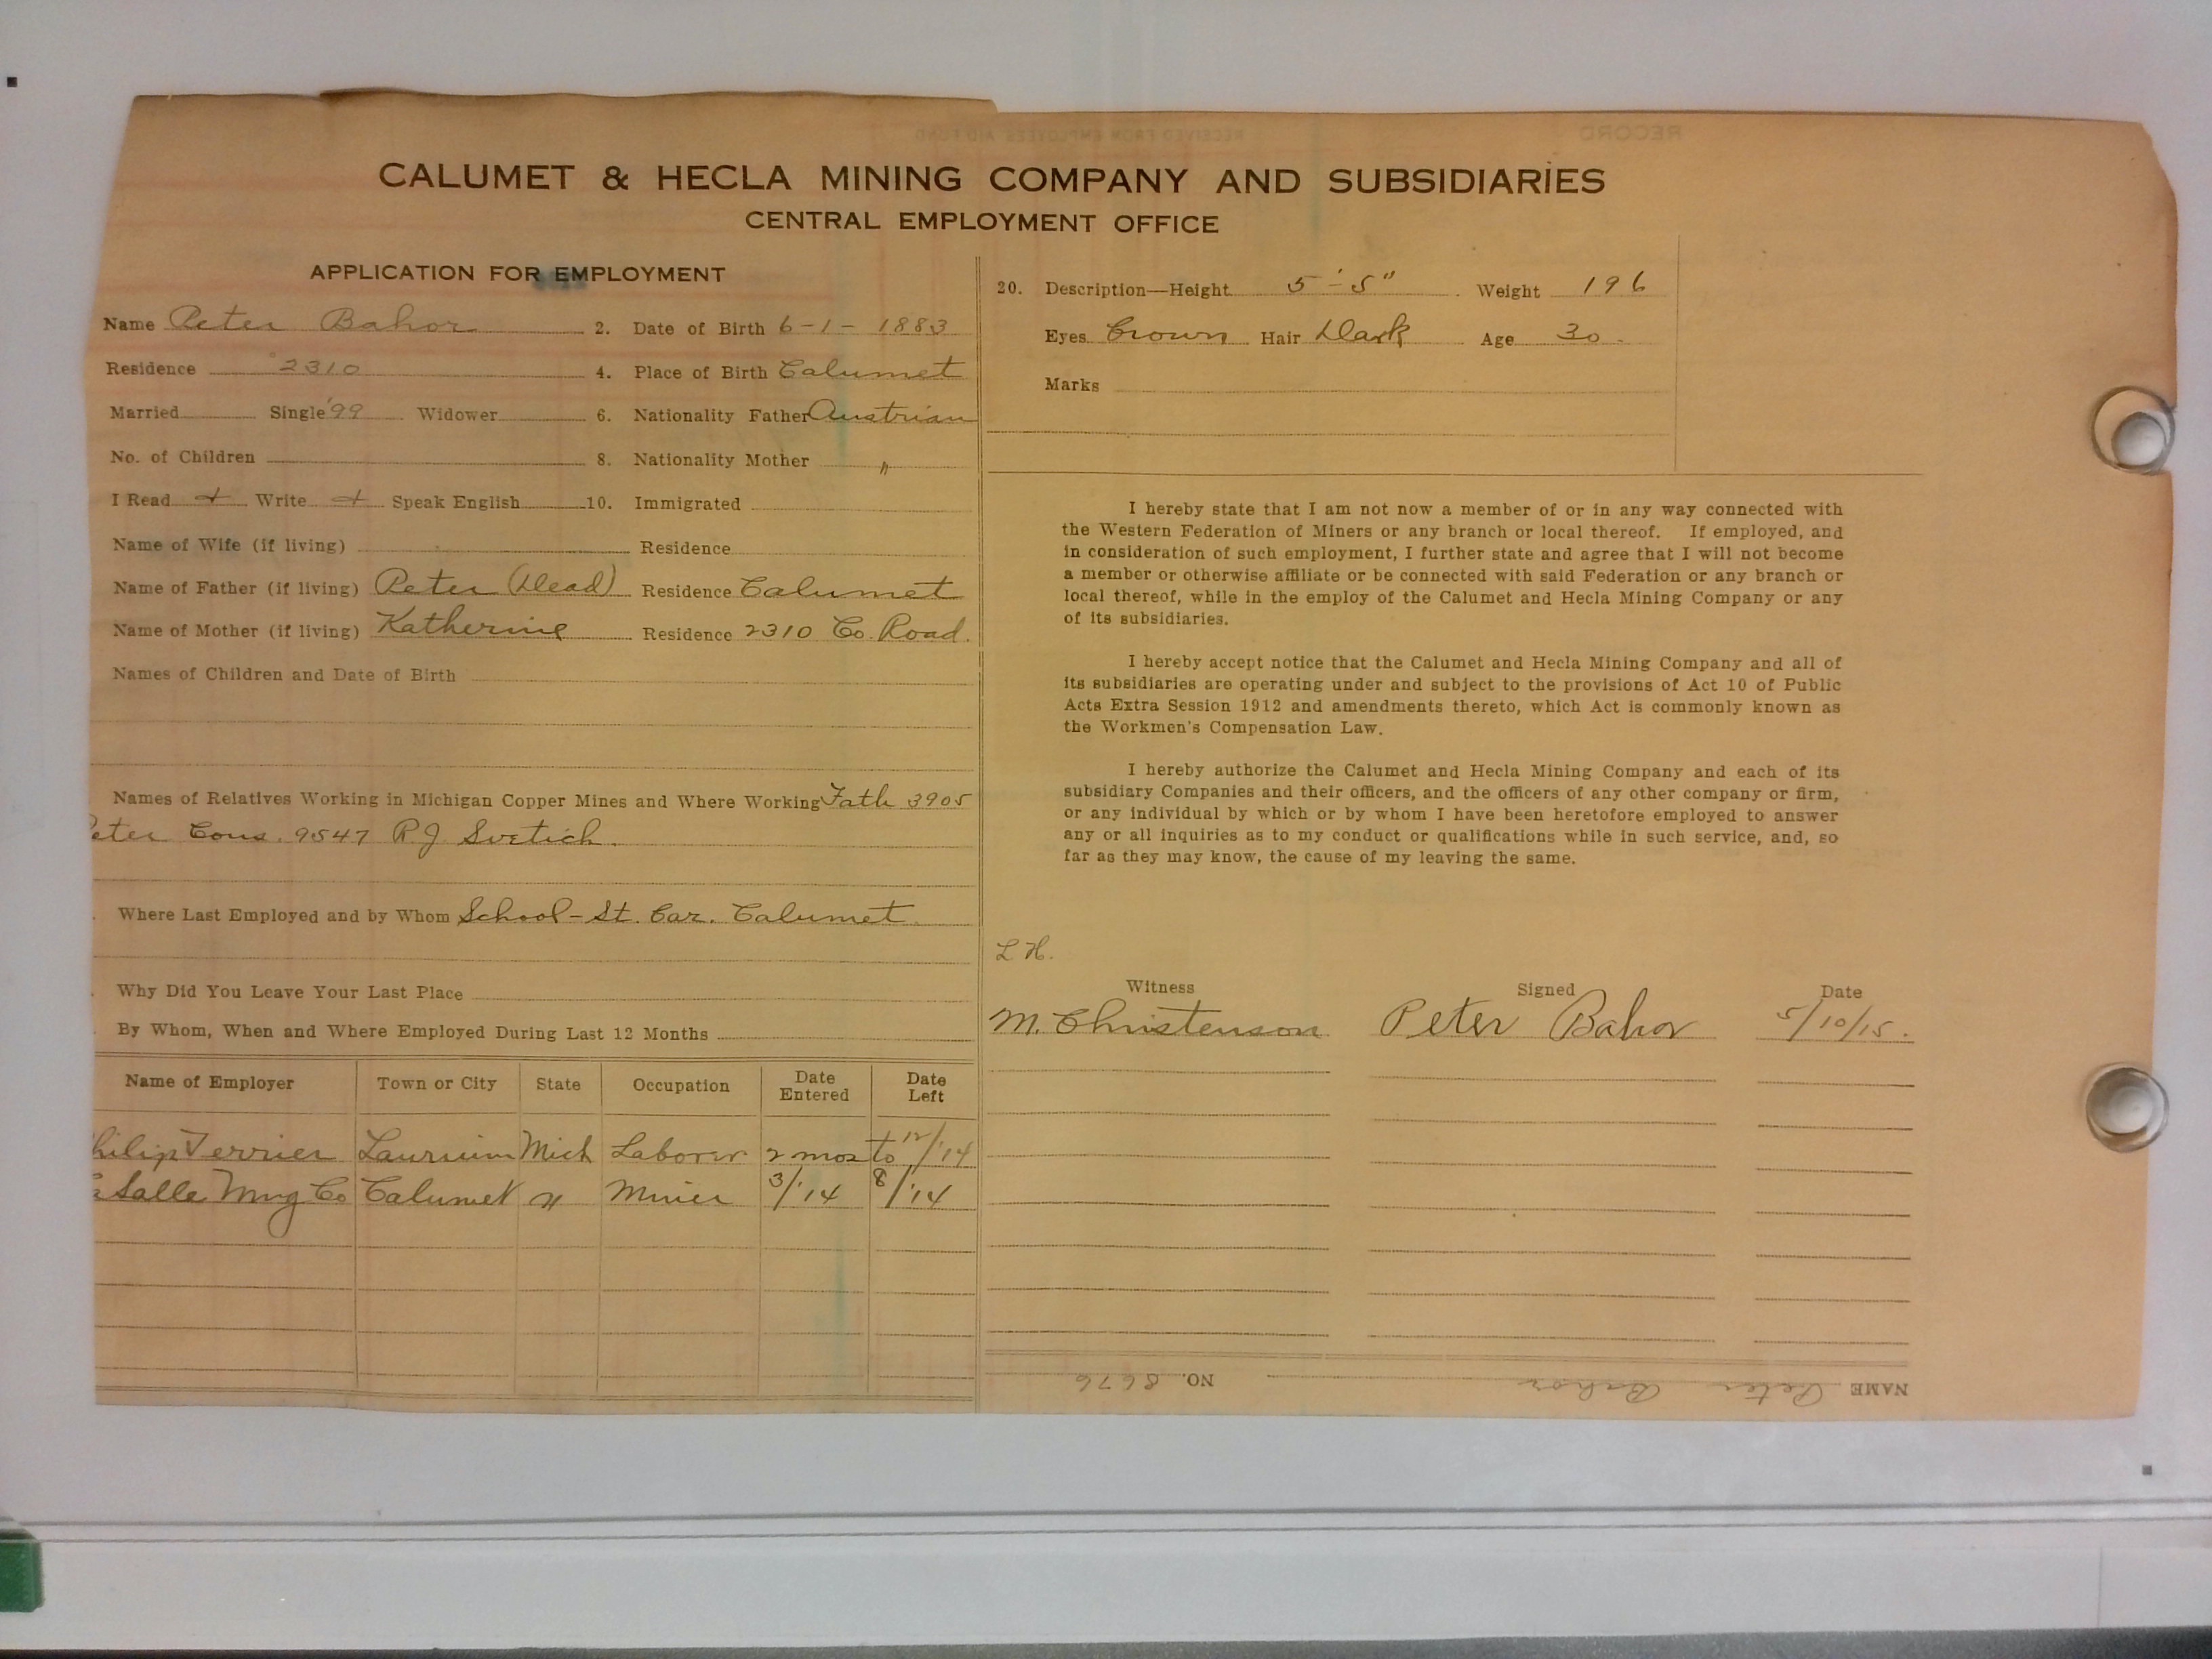 CALUMET & HECLA MINING COMPANY AND SUBSIDIARIES
CENTRAL EMPLOYMENT OFFICE
APPLICATION FOR EMPLOYMENT
Name Peter Bahor 2. Date of Birth 6-1-1883
Residence 2310 4. Place of Birth Calumet
Married Single '99 Widower 6. Nationality Father Austrian
No. of Children 8. Nationality Mother "
I Read + Write + Speak English 10. Immigrated
Name of Wife (if living) Residence
Name of Father (if living) Peter (Dead) Residence Calumet
Name of Mother (if living) Katherine Residence 2310 Co. Road.
Names of Children and Date of Birth
Names of Relatives Working in Michigan Copper Mines and Where Working Fath 3905
eter Cous. 9547 R.J. Svetich.
Where Last Employed and by Whom School-St. Car. Calumet.
Why Did You Leave Your Last Place
By Whom, When and Where Employed During Last 12 Months
Name of Employer Town or City State Occupation Date Entered Date Left
hilip Terrier Laurium Mich Laborer 2 mos to 12/'14
Salle Mng Co Calumet " Miner 3/'14 8/'14
20. Description—Height 5'-5" Weight 196
Eyes Brown Hair Dark Age 30
Marks
I hereby state that I am not now a member of or in any way connected with
the Western Federation of Miners or any branch or local thereof. If employed, and
in consideration of such employment, I further state and agree that I will not become
a member or otherwise affiliate or be connected with said Federation or any branch or
local thereof, while in the employ of the Calumet and Hecla Mining Company or any
of its subsidiaries.
I hereby accept notice that the Calumet and Hecla Mining Company and all of
its subsidiaries are operating under and subject to the provisions of Act 10 of Public
Acts Extra Session 1912 and amendments thereto, which Act is commonly known as
the Workmen's Compensation Law.
I hereby authorize the Calumet and Hecla Mining Company and each of its
subsidiary Companies and their officers, and the officers of any other company or firm,
or any individual by which or by whom I have been heretofore employed to answer
any or all inquiries as to my conduct or qualifications while in such service, and, so
far as they may know, the cause of my leaving the same.
L H.
Witness Signed Date
M. Christenson Peter Bahor 5/10/15.
NAME Peter Bahor NO. 8676
RECEIVED FROM EMPLOYEES AID FUND
RECORD